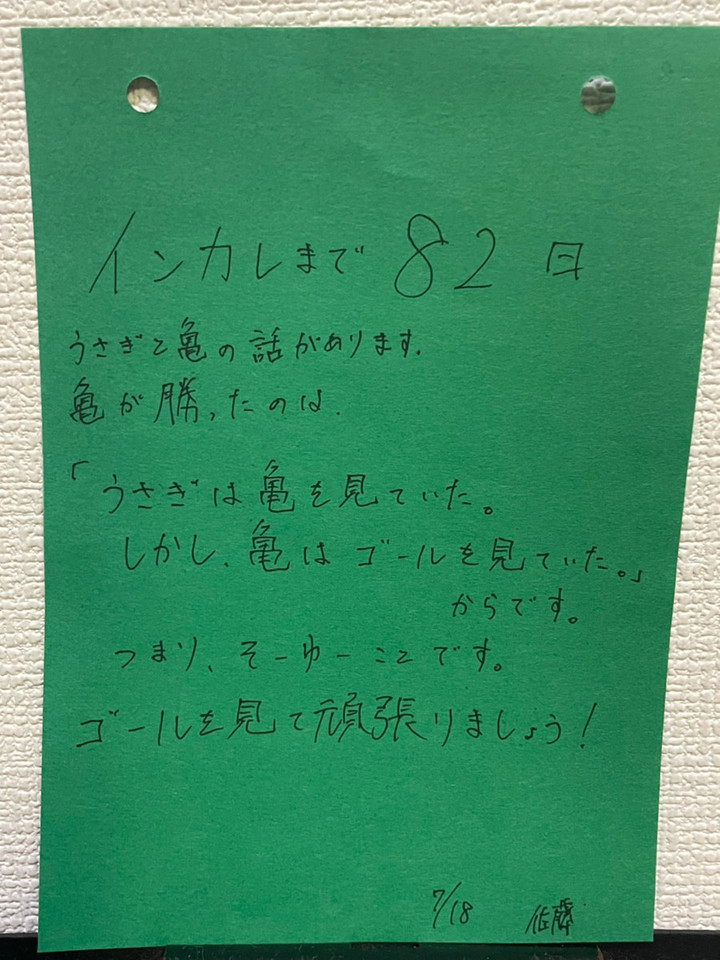 インカレまで 82 日
うさぎと亀の話があります.
亀が勝ったのは.
「うさぎは亀を見ていた。
しかし、亀はゴールを見ていた。」
からです。
つまり、そーゆーことです。
ゴールを見て頑張りましょう!
7/18 佐藤